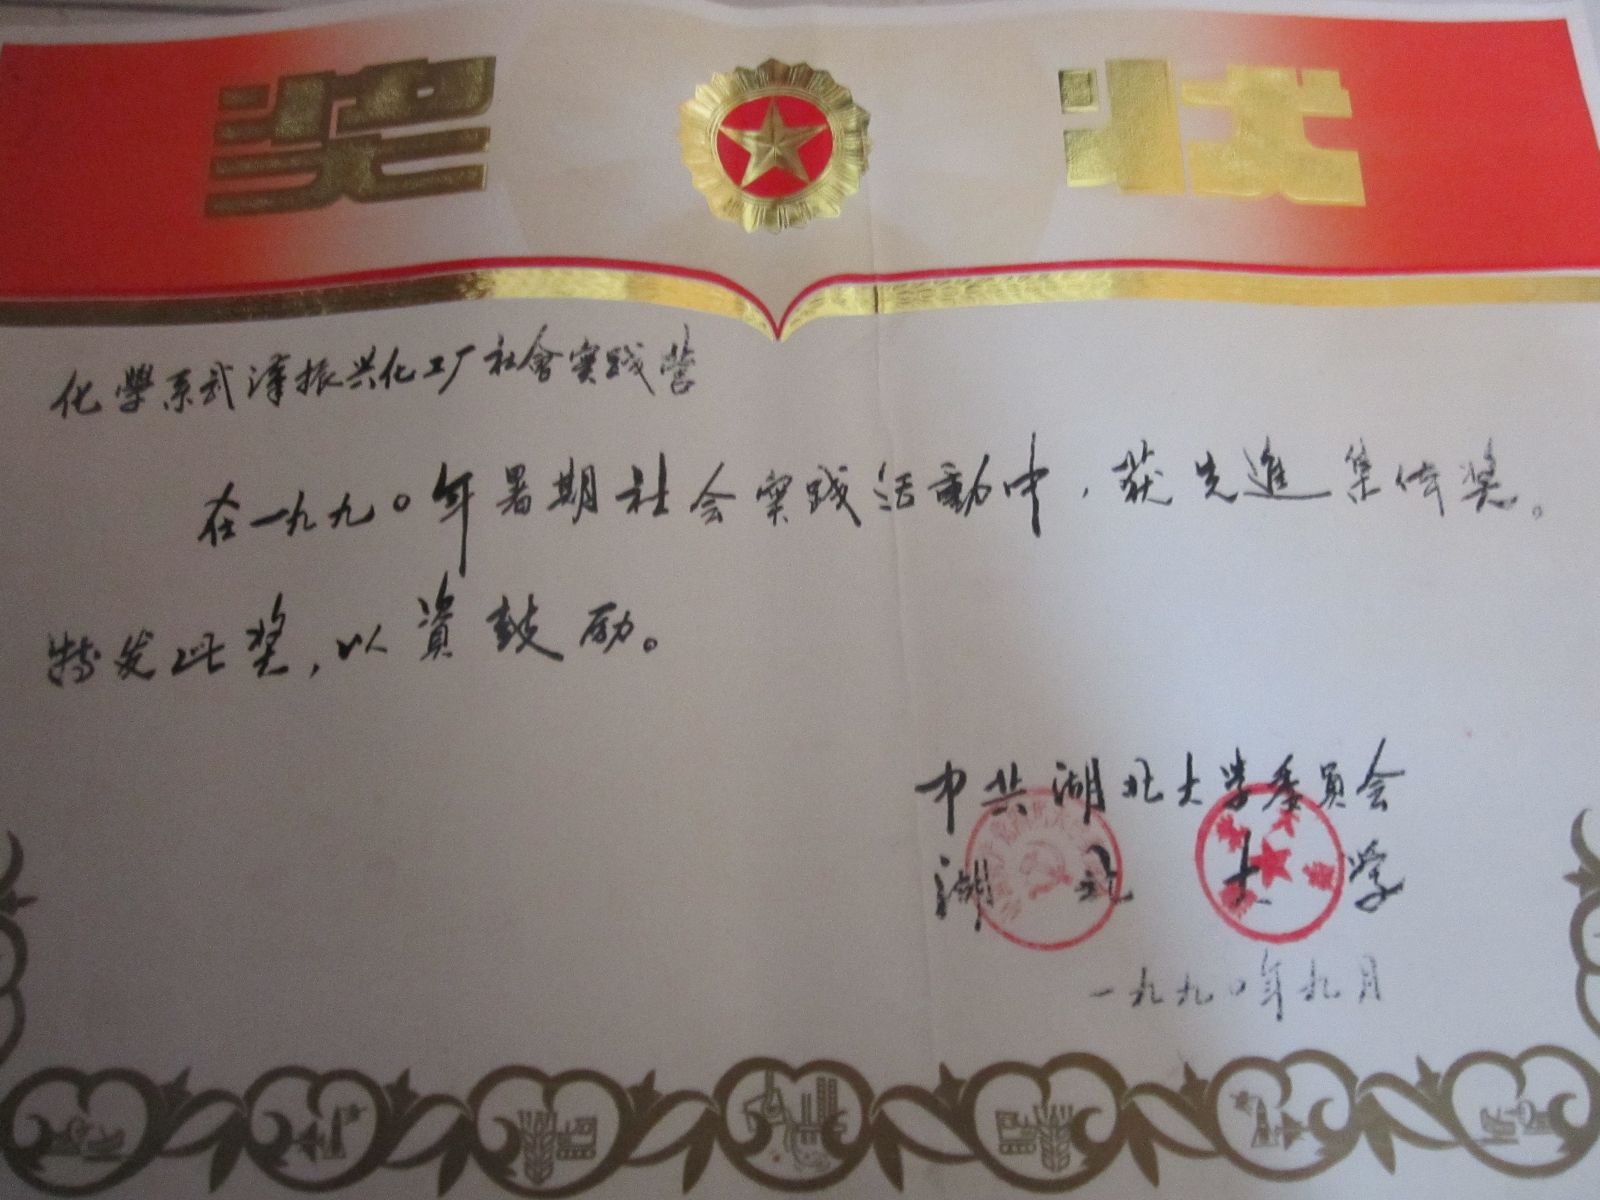 奖状
化學系武漢振兴化工厂社會实践营
在一九九〇年暑期社会实践活動中，获先進集体奖。
特发此奖，以資鼓励。
中共湖北大学委員会
湖北大学
一九九〇年九月